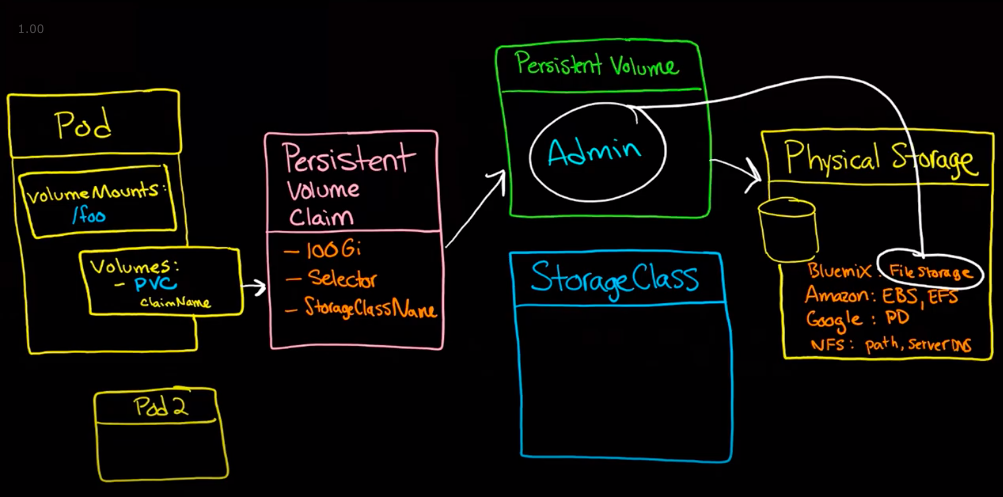 1.00
Pod
volumeMounts:
/foo
Volumes:
- PVC
claimName
Pod 2
Persistent
Volume
Claim
- 100Gi
- Selector
- StorageClassName
Persistent Volume
Admin
StorageClass
Physical Storage
Bluemix: File Storage
Amazon: EBS, EFS
Google: PD
NFS: path, server DNS